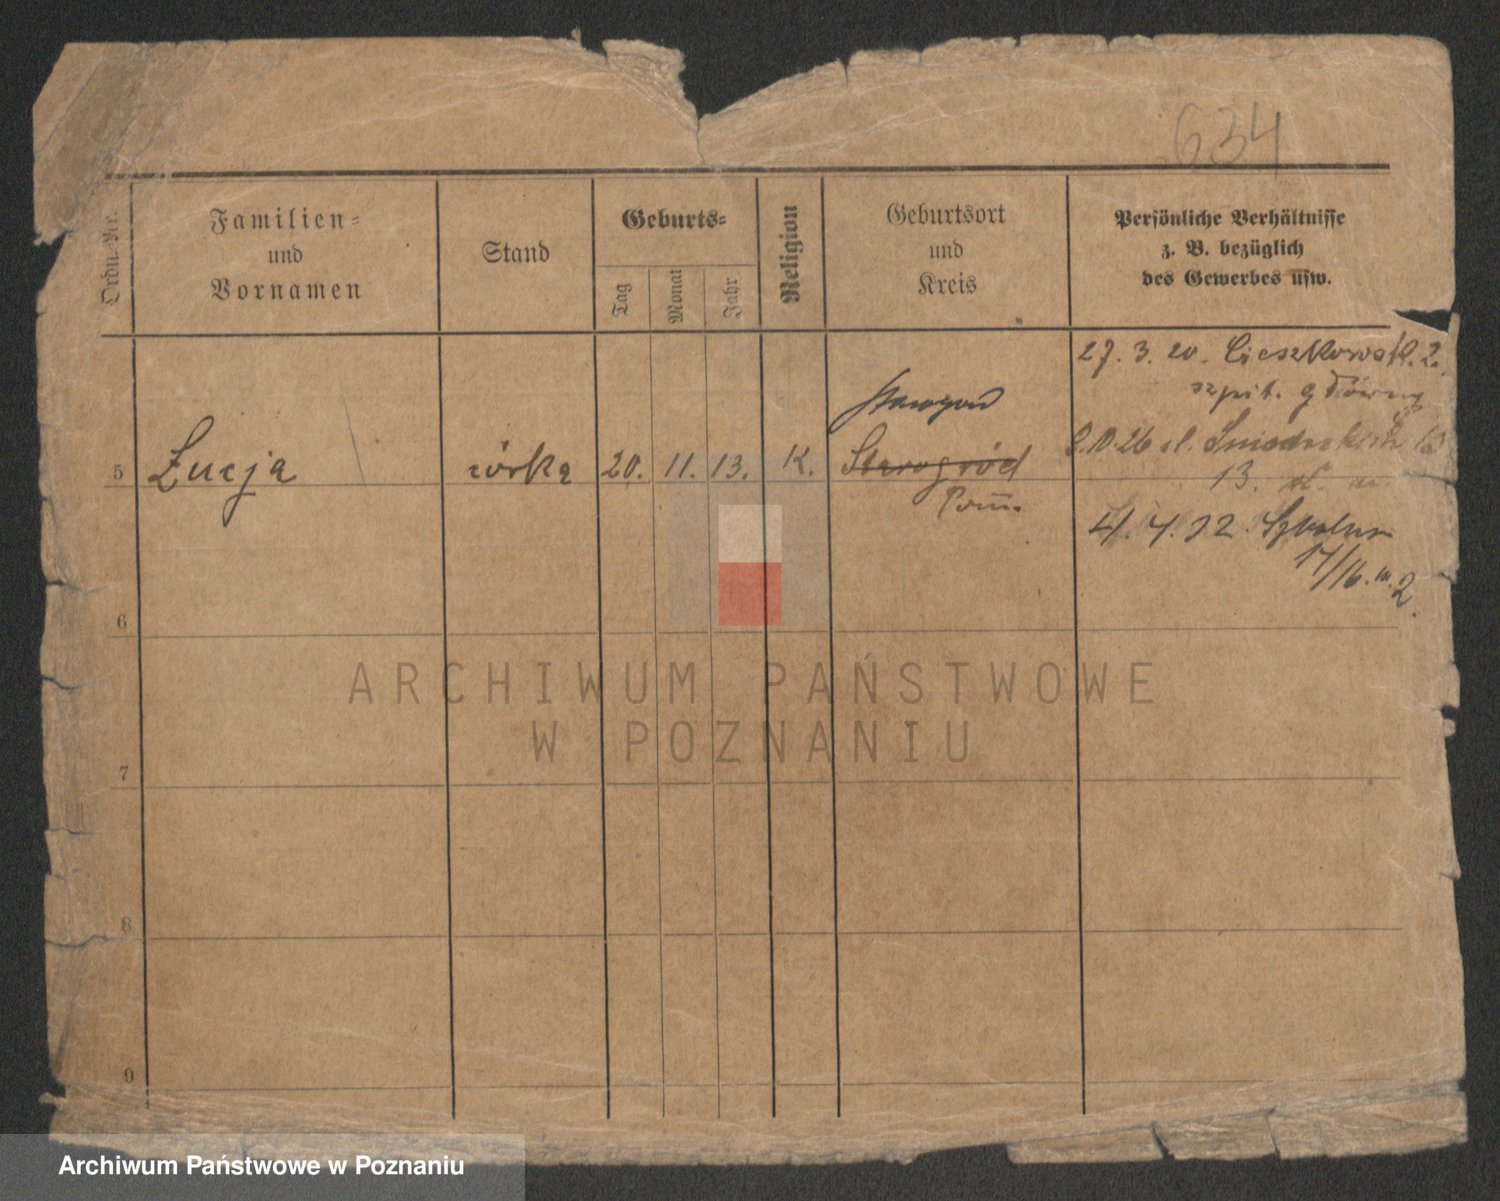 634
Ordn. Nr.
Familien=
und
Vornamen
Stand
Geburts=
Tag
Monat
Jahr
Religion
Geburtsort
und
Kreis
Persönliche Verhältnisse
z. B. bezüglich
des Gewerbes usw.
5
Łucja
córka
20.
11.
13.
K.
Starogard
Starogród
Pom.
27. 3. 20. Cieszkowsk. 2.
szpit. główny
9.10.26 ul. Śniadeckich
13.
4. 4. 32. Szkolna
17/16. m. 2.
6
7
8
9
ARCHIWUM PAŃSTWOWE
W POZNANIU
Archiwum Państwowe w Poznaniu